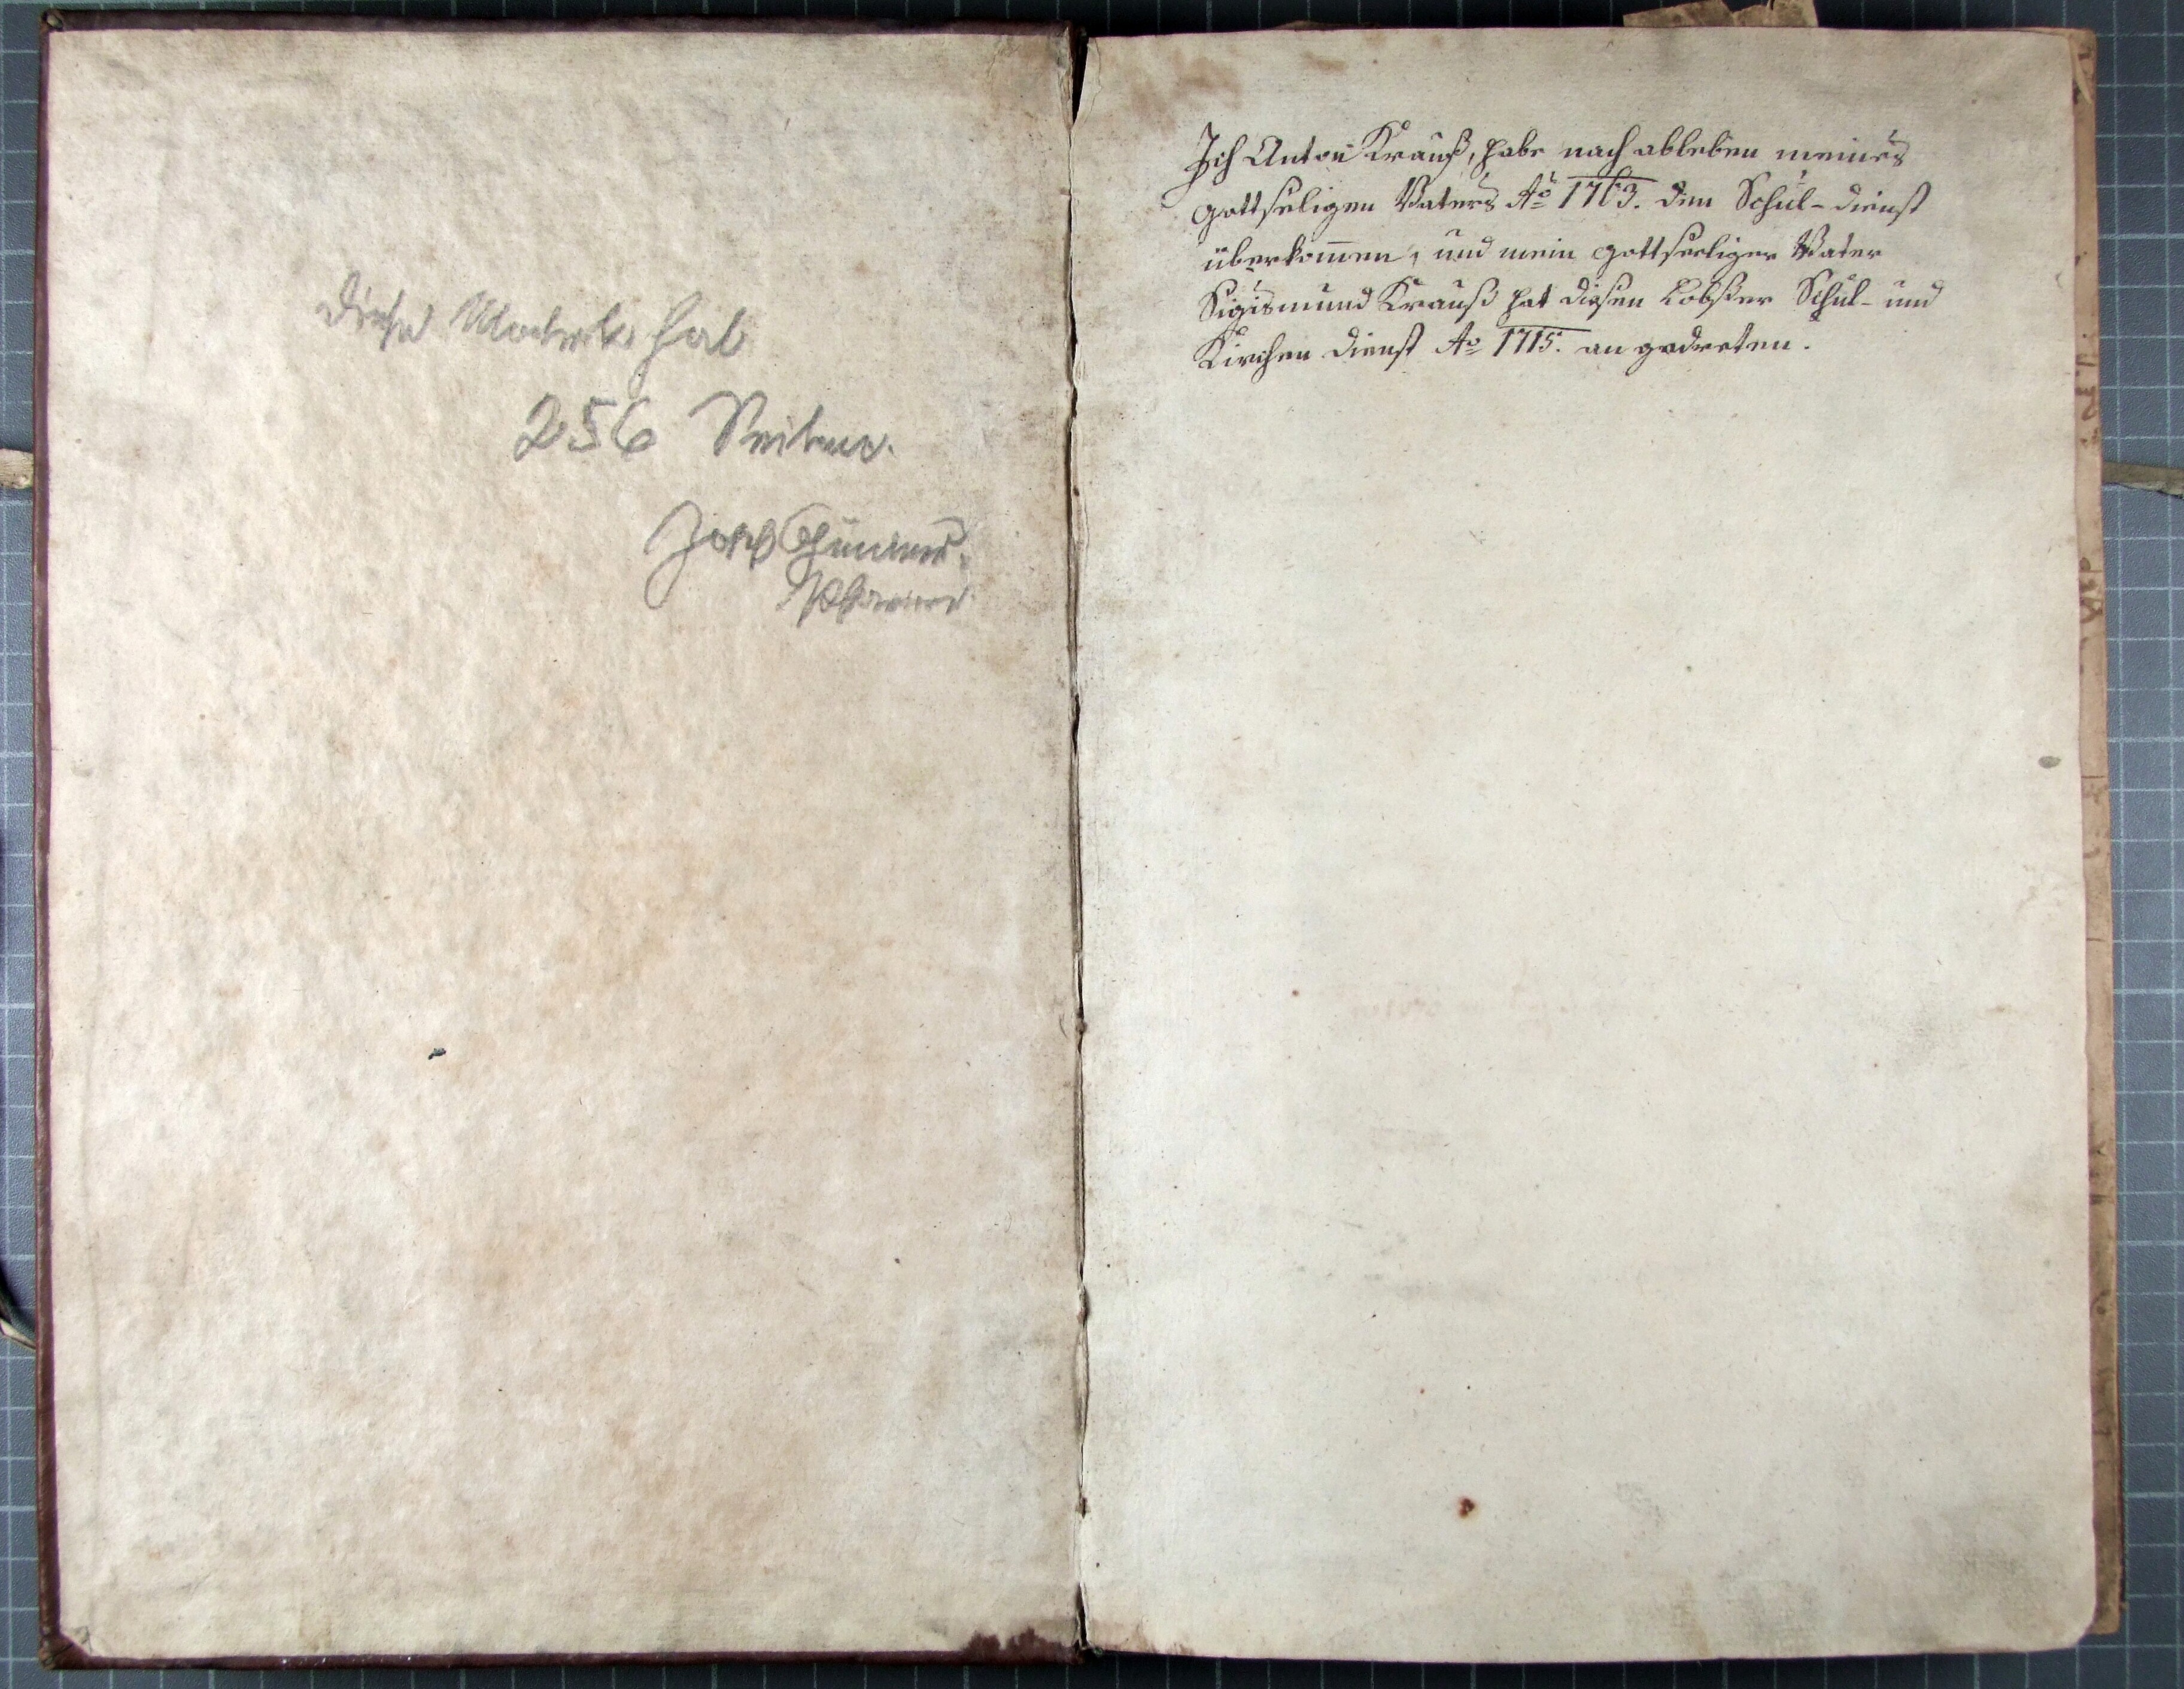 Diese Matrik hat
256 Seiten.
Josef
Pfarrer
Ich Anton Krauß, habe nach ableben meines
gottseligen Vaters Ao 1763. den Schul-dienst
überkom̅en, und mein gottseeliger Vater
Sigismund Krauß hat diesen Lobßer Schul- und
Kirchen dienst Ao 1715. an gedreten.